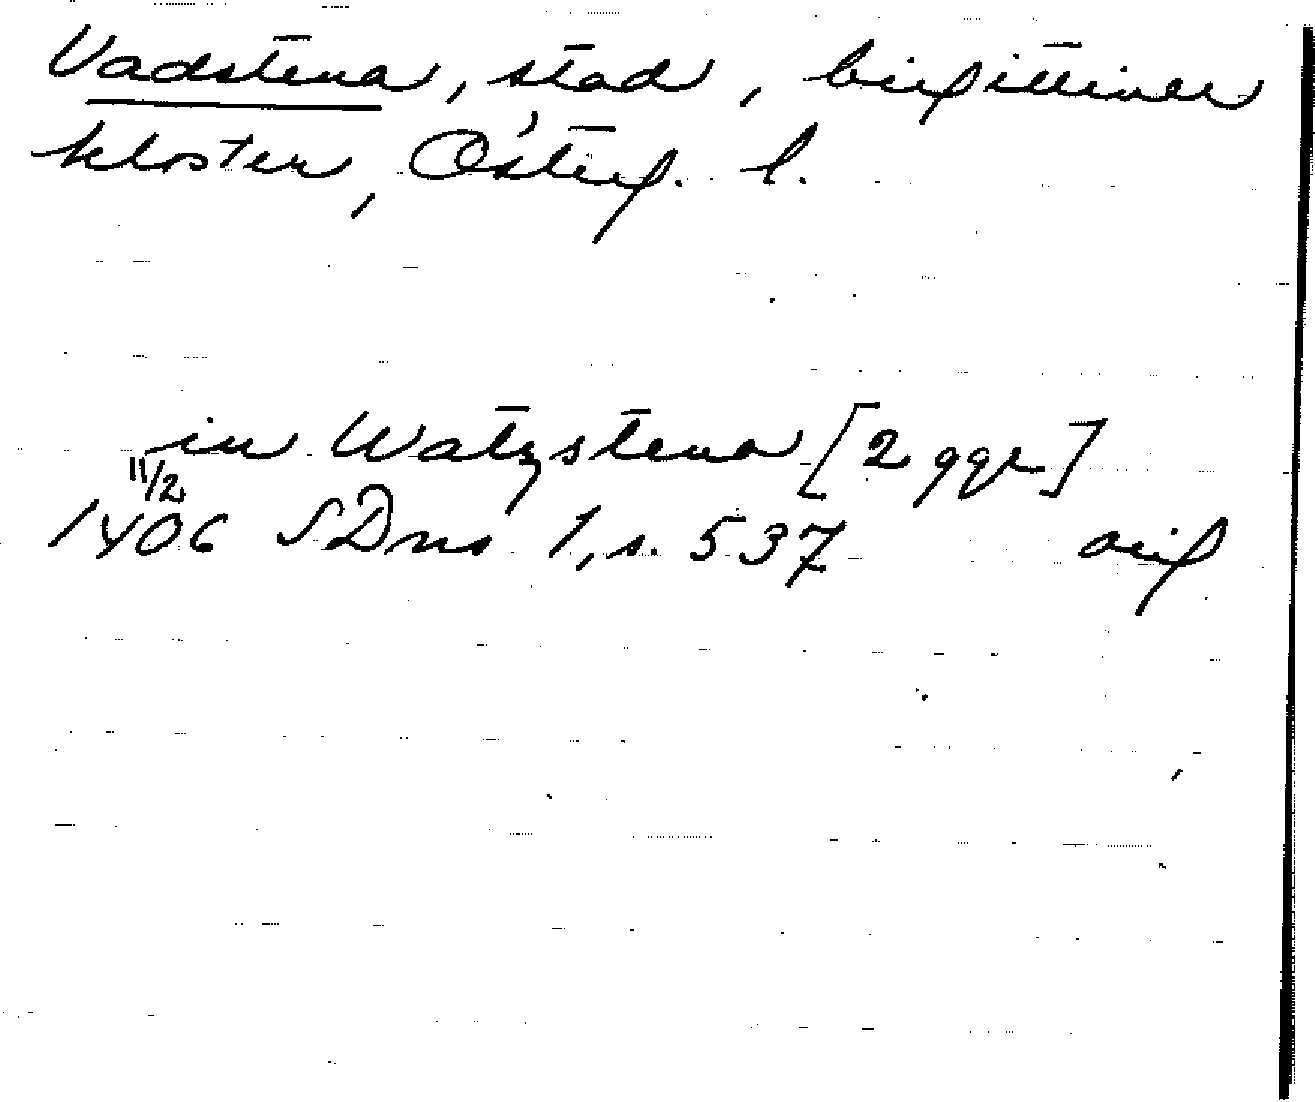 Vadstena, stad, birgittiner
kloster, Österg. l.
in Watzstena [2 ggr]
11/2
1406 SDns 1, s. 537 orig